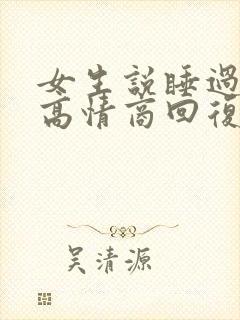 女生説睡過
高情商回復
吳清源